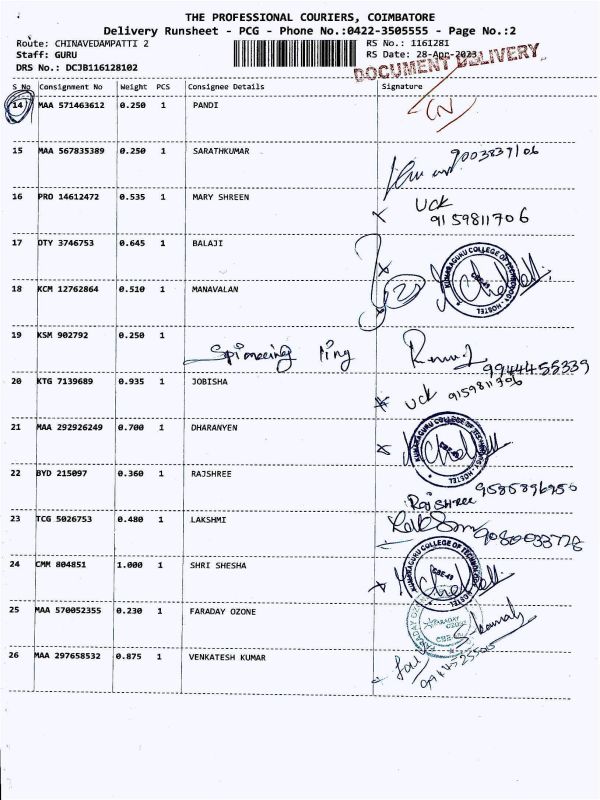 THE PROFESSIONAL COURIERS, COIMBATORE
Delivery Runsheet - PCG - Phone No.:0422-3505555 - Page No.:2
Route: CHINAVEDAMPATTI 2 RS No.: 1161281
Staff: GURU RS Date: 28-Apr-2023
DRS No.: DCJB116128102
DOCUMENT DELIVERY
S No Consignment No Weight PCS Consignee Details Signature
14 MAA 571463612 0.250 1 PANDI
15 MAA 567835389 0.250 1 SARATHKUMAR
16 PRO 14612472 0.535 1 MARY SHREEN UCK
9159811706
17 OTY 3746753 0.645 1 BALAJI
18 KCM 12762864 0.510 1 MANAVALAN
KUMARAGURU COLLEGE OF TECHNOLOGY - HOSTEL
CBE-49
19 KSM 902792 0.250 1
9944455339
20 KTG 7139689 0.935 1 JOBISHA UCK 9159811706
21 MAA 292926249 0.700 1 DHARANYEN
KUMARAGURU COLLEGE OF TECHNOLOGY - HOSTEL
22 BYD 215097 0.360 1 RAJSHREE
Rajshree
23 TCG 5026753 0.480 1 LAKSHMI
24 CMM 804851 1.000 1 SHRI SHESHA
KUMARAGURU COLLEGE OF TECHNOLOGY - HOSTEL
CBE-49
25 MAA 570052355 0.230 1 FARADAY OZONE
FARADAY OZONE
26 MAA 297658532 0.875 1 VENKATESH KUMAR